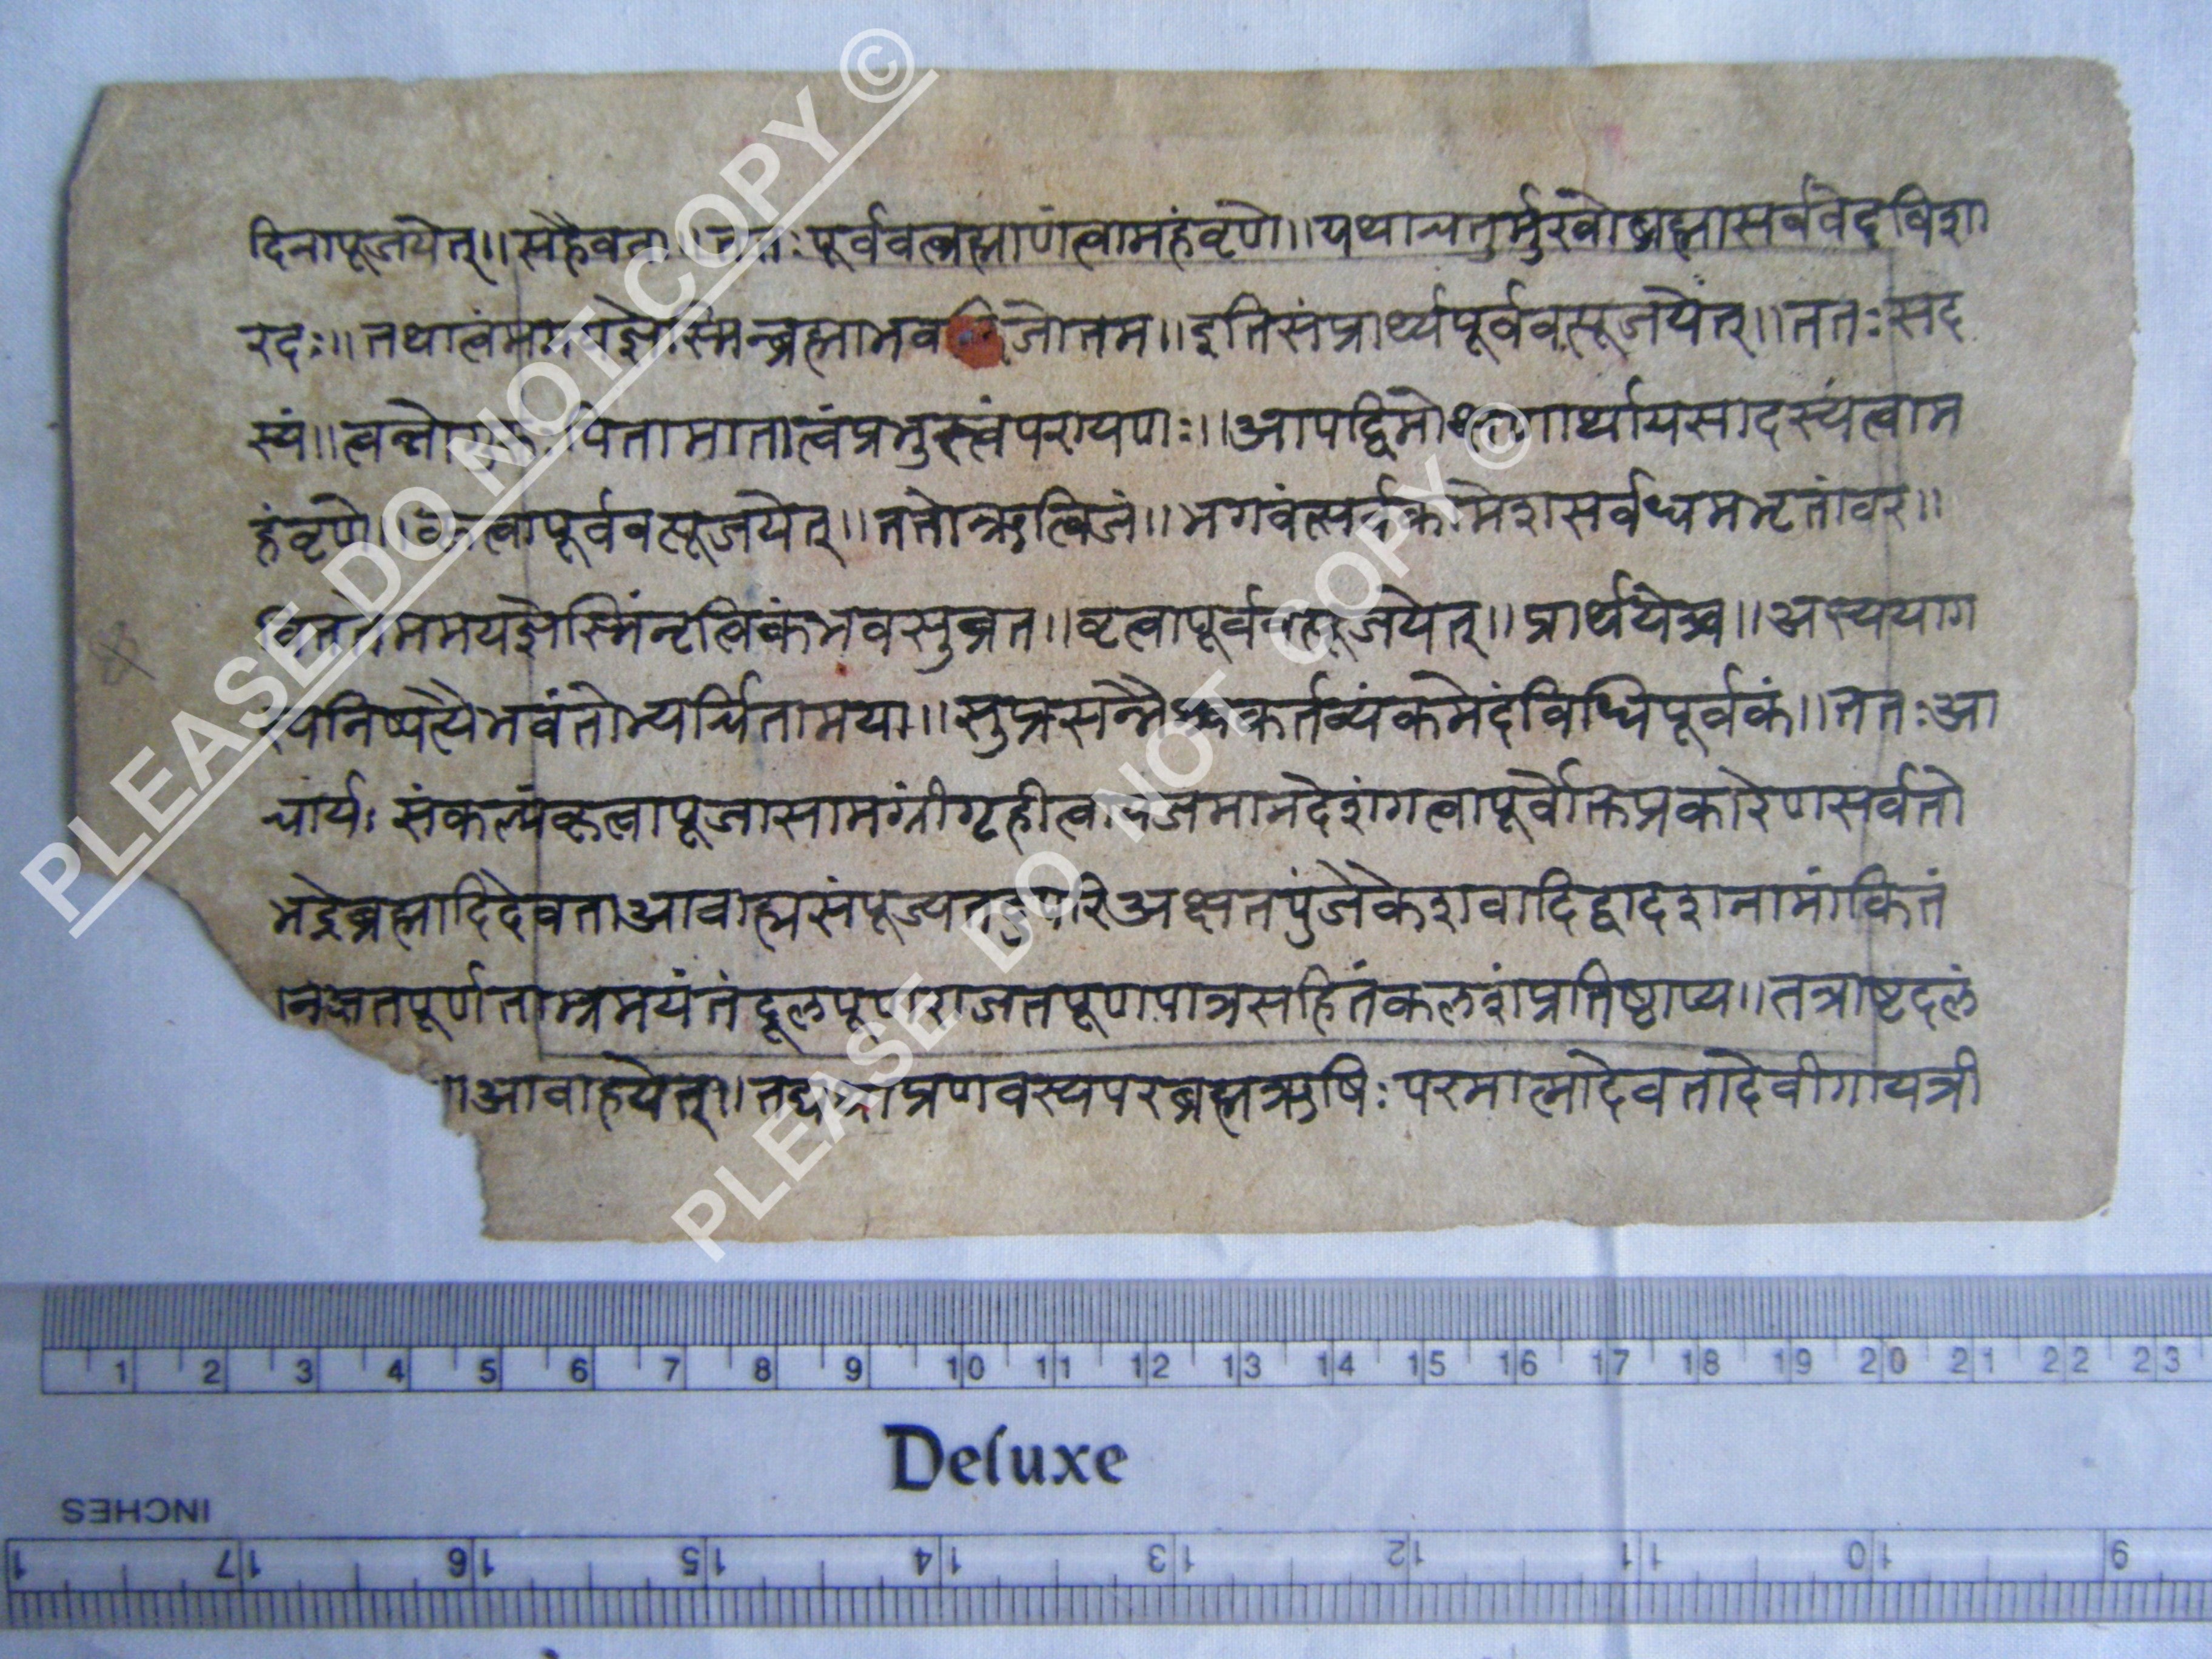 दिनापूजयेत्॥सहैवता॥ततःपूर्ववत्ब्रह्माणंत्वामहंवृणे॥यथाचतुर्मुखोब्रह्मासर्ववेदविशा
रदः॥तथात्वंममयज्ञेस्मिन्ब्रह्माभव जोत्तम॥इतिसंप्रार्थ्यपूर्ववत्पूजयेत्॥ततःसद
स्यं॥त्वन्नो पितामातात्वंप्रभुस्त्वंपरायणः॥आपद्विमोक्षणार्थायसादस्यंत्वाम
हंवृणे॥वृत्वापूर्ववत्पूजयेत्॥ततोऋत्विजं॥भगवंत्सर्वकामेशसर्वधमभृतांवर॥
विततेममयज्ञेस्मिंनृत्विकंभवसुव्रत॥वृत्वापूर्ववत्पूजयेत्॥प्रार्थयेच्च॥अस्ययाग
स्यनिष्पत्यैभवंतोभ्यर्चितामया॥सुप्रसन्नैश्चकर्तव्यंकमेदंविधिपूर्वकं॥ततःआ
चार्यः संकल्पंकृत्वापूजासामग्रीगृहीत्वायजमानदेशंगत्वापूर्वोक्तप्रकारेणसर्वतो
भद्रेब्रह्मादिदेवताआवाह्यसंपूज्यतदुपरिअक्षतपुंजेकेशवादिद्वादशनामांकितं
पूर्णताम्रमयंतंदूलपूर्णराजतपूर्णपात्रसहितंकलशंप्रतिष्ठाप्य॥तत्राष्टदलं
॥आवाहयेत्॥तद्यथाप्रणवस्यपरब्रह्मऋषिःपरमात्मादेवतादेवीगायत्री
PLEASE DO NOT COPY ©
PLEASE DO NOT COPY ©
1 2 3 4 5 6 7 8 9 10 11 12 13 14 15 16 17 18 19 20 21 22 23
Deluxe
INCHES
17 16 15 14 13 12 11 10 9